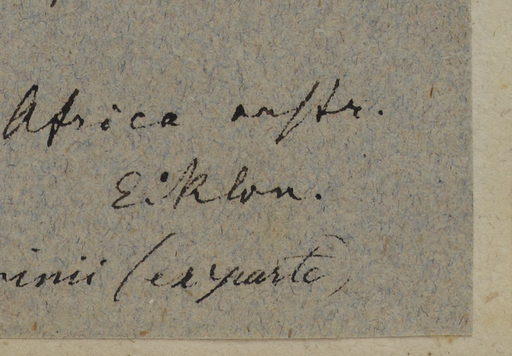 Africa austr.
Eiklon.
inii (ex parte)